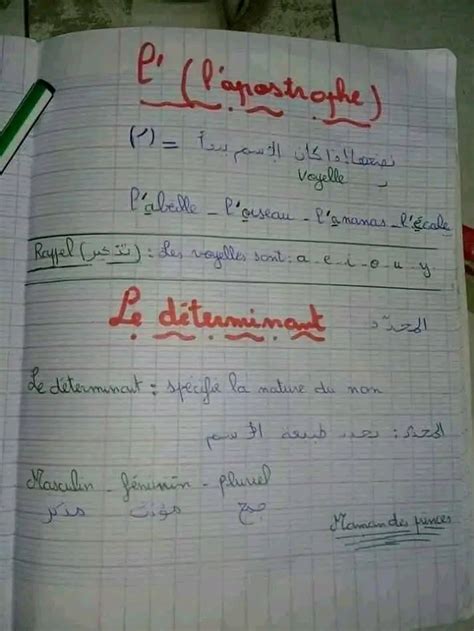 l' (l'apostrophe)
(') = نضعها إذا كان الإسم يبدأ
بـ voyelle
l'abeille - l'oiseau - l'ananas - l'école
Rappel (تذكير) : Les voyelles sont : a - e - i - o - u - y
Le déterminant المحدّد
Le déterminant : spécifie la nature du nom
المحدّد : يحدد طبيعة الإسم
Masculin - féminin - pluriel
مذكر مؤنث جمع
Maman des princes